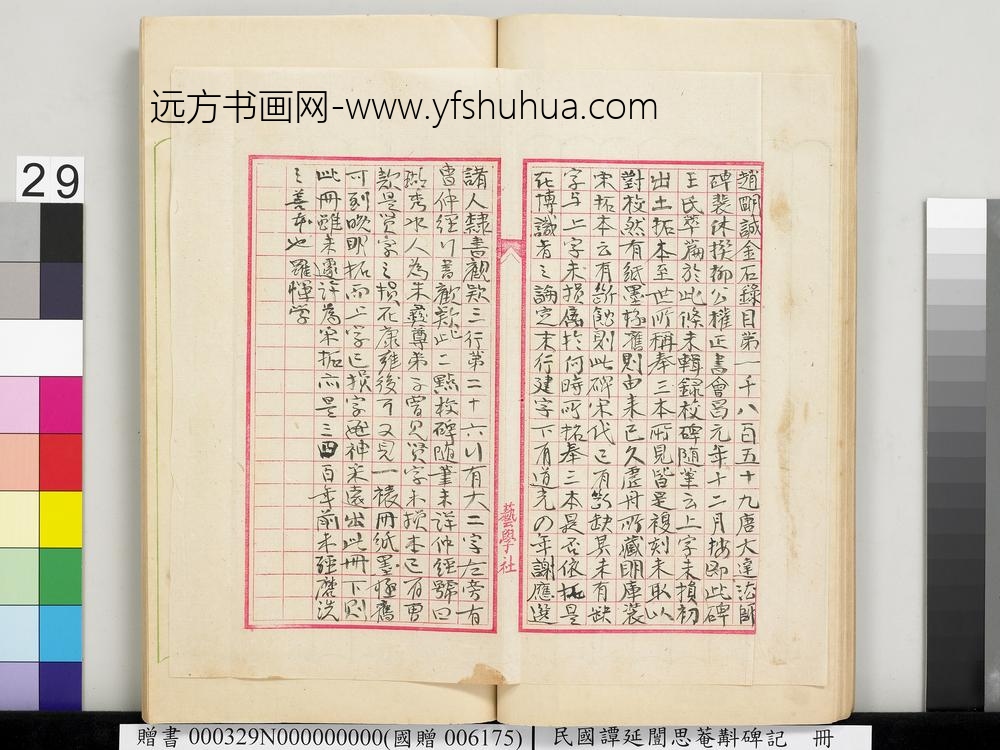 远方书画网-www.yfshuhua.com
29
趙明誠金石錄目第一千八百五十九唐大達法師
碑裴休撰柳公權正書會昌元年十二月按即此碑
王氏萃編於此條未輯錄校碑隨筆云上字未損初
出土拓本至世所稱奉三本所見皆是複刻未取以
對校然有紙墨極舊則由來已久虛舟所藏明庫裝
宋拓本云有斷蝕則此碑宋代已有斷缺其未有缺
字与上字未損係於何時所拓奉三本是否依此是
在博識者之論定末行建字下有道光の年謝應選
諸人隸書觀欵三行第二十六行有大二字左旁有
曹仲經行書觀欵此二點校碑隨筆未詳仲經號曰
秀水人為朱彝尊弟子曾見賢字未損本已有曹
欵是賢字之損在康雍後可又見一裱冊紙墨極舊
可到晚明拓而上字已損字神采遠出此冊下則
此冊雖未遽許為宋拓而是三四百年前未經磨洗
之善本也 羅惇
藝學社
贈書 000329N000000000(國贈 006175) 民國譚延闓思菴斠碑記 冊